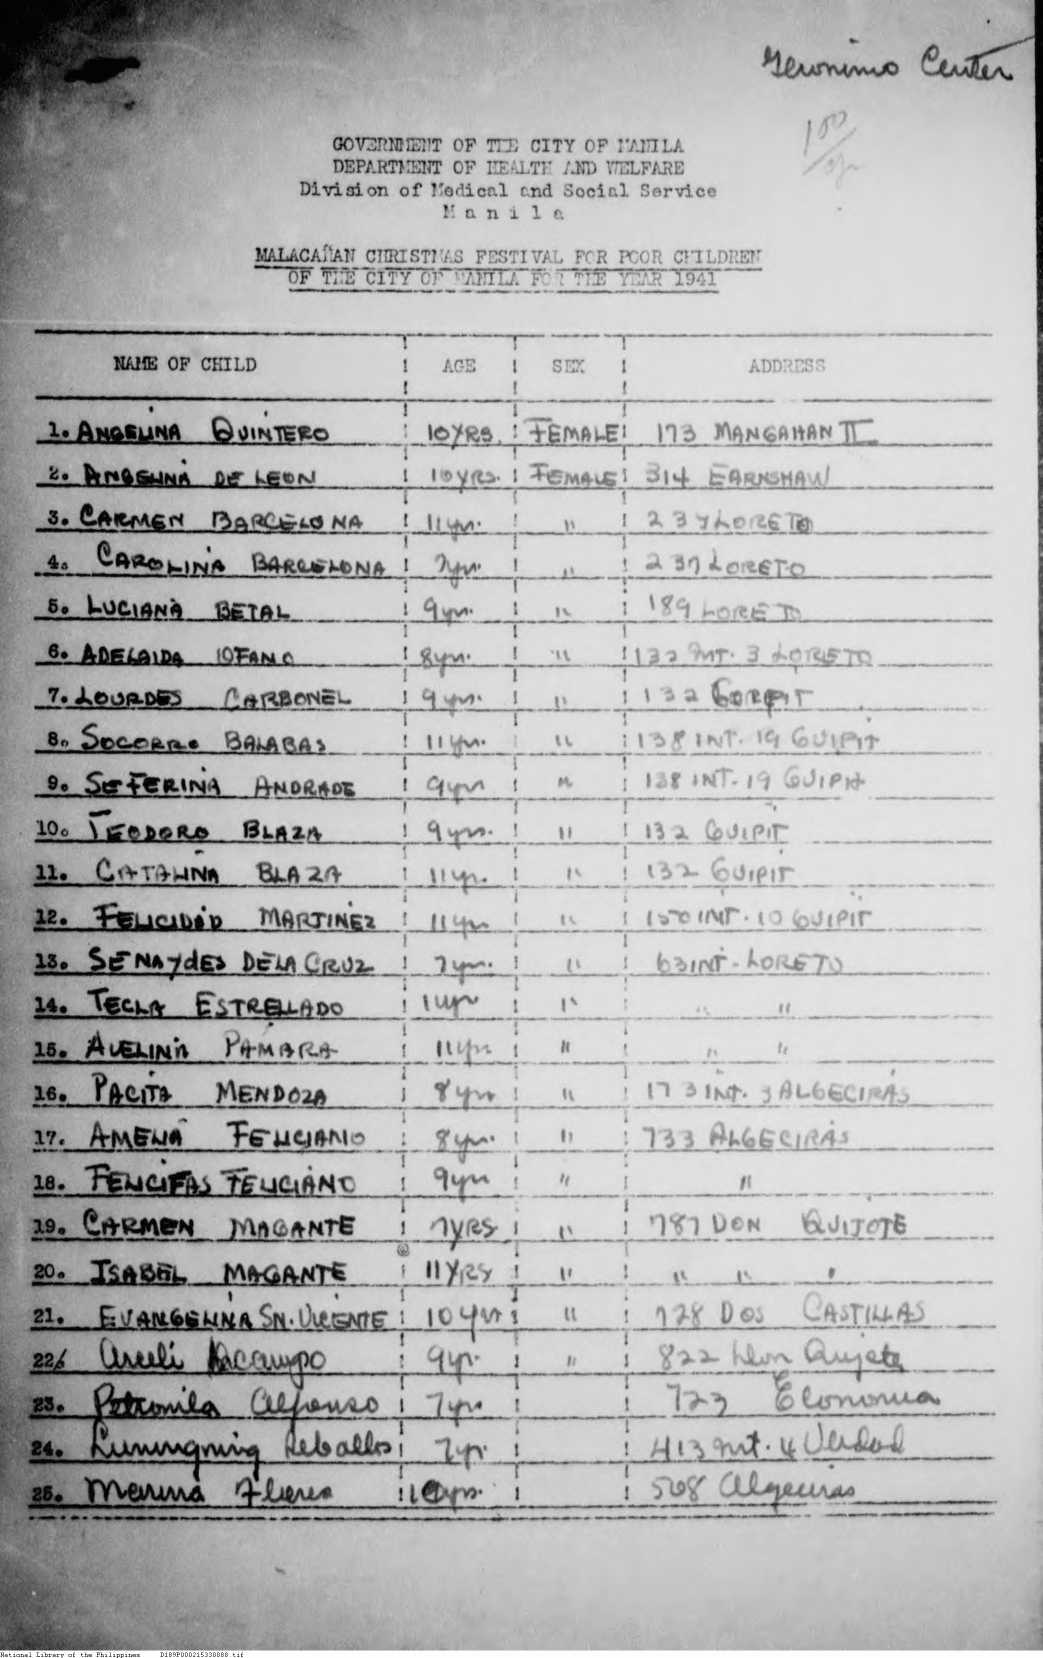 Geronimo Center
100
GOVERNMENT OF THE CITY OF MANILA
DEPARTMENT OF HEALTH AND WELFARE
Division of Medical and Social Service
M a n i l a
MALACAÑAN CHRISTMAS FESTIVAL FOR POOR CHILDREN
OF THE CITY OF MANILA FOR THE YEAR 1941
NAME OF CHILD AGE SEX ADDRESS
1. ANGELINA QUINTERO 10 YRS. FEMALE 173 MANGAHAN II
2. ANGELINA DE LEON 10 YRS. FEMALE 314 EARNSHAW
3. CARMEN BARCELONA 11 yrs. " 237 LORETO
4. CAROLINA BARCELONA 7 yrs. " 237 LORETO
5. LUCIANA BETAL 9 yrs. " 189 LORETO
6. ADELAIDA 8 yrs. " 132 INT. 3 LORETO
7. LOURDES CARBONEL 9 yrs. " 132
8. SOCORRO BALABAS 11 yrs. " 138 INT. 19 GUIPIT
9. SEFERINA ANDRADE 9 yrs " 138 INT. 19 GUIPIT
10. TEODORO BLAZA 9 yrs. " 132 GUIPIT
11. CATALINA BLAZA 11 yrs. " 132 GUIPIT
12. FELICIDAD MARTINEZ 11 yrs " 150 INT. 10 GUIPIT
13. SENAydES DELA CRUZ 7 yrs. " 63 INT. LORETO
14. TECLA ESTRELLADO 11 yrs " " "
15. AVELINA PAMBRA 11 yrs " " "
16. PACITA MENDOZA 8 yrs " 173 INT. 3 ALGECIRAS
17. AMELIA FELICIANO 8 yrs. " 733 ALGECIRAS
18. FELICIFAS FELICIANO 9 yrs " "
19. CARMEN MAGANTE 7 YRS " 787 DON QUIJOTE
20. ISABEL MAGANTE 11 YRS " " " "
21. EVANGELINA SN. VICENTE 10 yrs " 728 DOS CASTILLAS
22. Araceli Ocampo 9 yr. " 822 Don Quijote
23. Petronila Alfonso 7 yrs 723 Economia
24. Luningning Ceballos 7 yr. 413 Int. 4 Verdad
25. Marina Flores yrs. 508 Algeciras
National Library of the Philippines D189P000215330888.tif